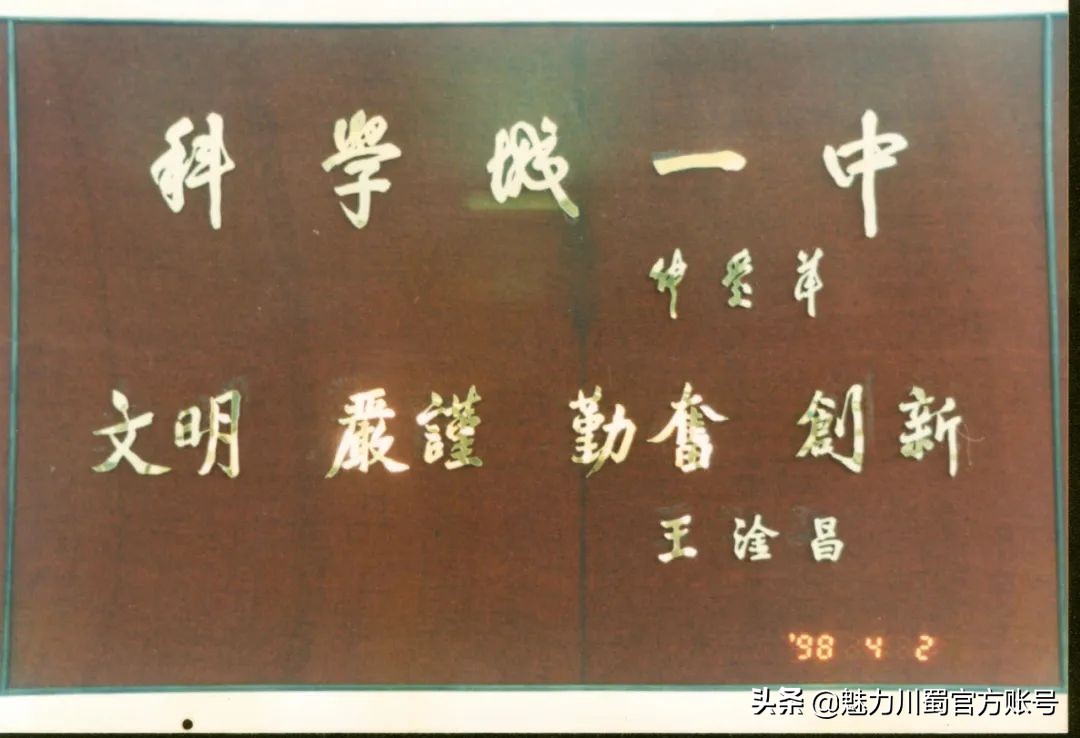 科學城一中
張愛萍
文明 嚴謹 勤奮 創新
王淦昌
'98 4 2
头条 @魅力川蜀官方账号